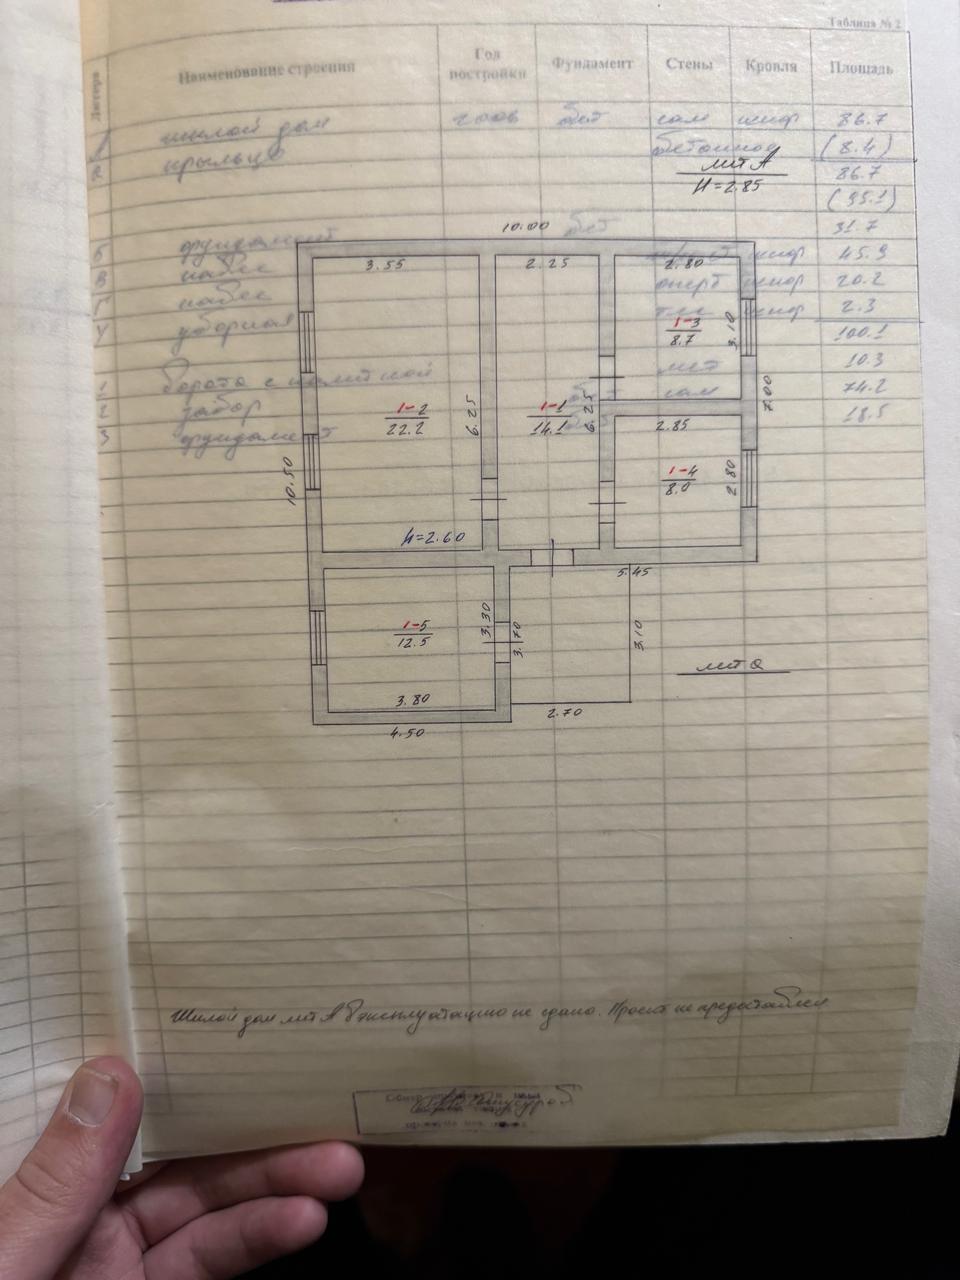 Таблица № 2
Литера Наименование строения Год постройки Фундамент Стены Кровля Площадь
жилой дом 2006 бет сам шифр 86.7
а крыльцо бетонное (8.4)
лит А 86.7
H=2.85 (95.1)
10.00
Б фундамент бет 31.7
В навес шифр 45.9
Г навес шифр 20.2
У уборная шифр 2.3
100.1
1 ворота с калиткой мет 10.3
2 забор сам 74.2
3 фундамент 18.5
3.55 2.25 2.80
1-3
8.7
3.10
7.00
1-2
22.2
6.25
1-1
14.1
6.25
2.85
1-4
8.0
2.80
10.50
h=2.60
5.45
1-5
12.5
3.30
3.70
3.10
лит а
3.80
2.70
4.50
Жилой дом лит А в эксплуатацию не сдано. Проект не предоставлен